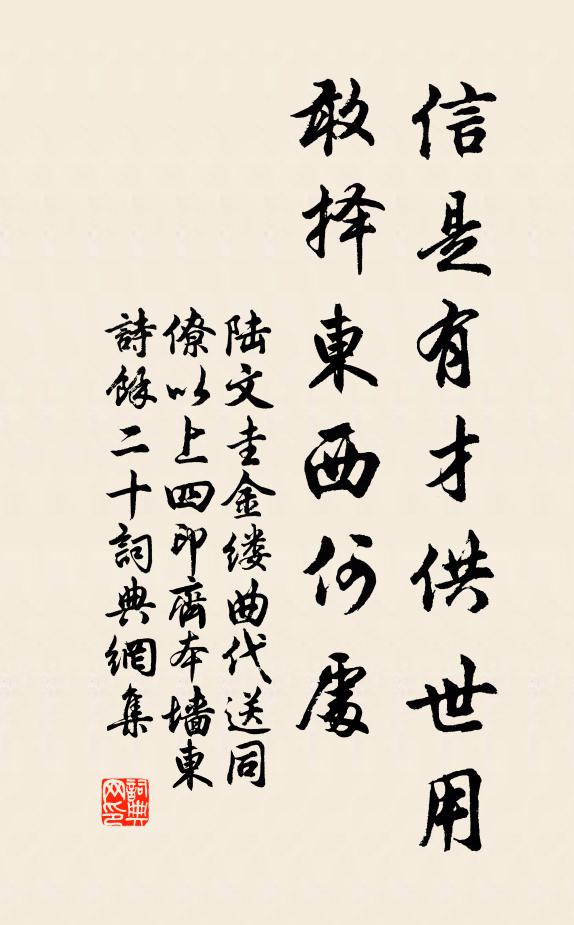 信是有才供世用
敢择東西何處
陆文圭金缕曲代送同
僚以上四印齊本墙東
詩餘二十詞典網集
詞典网印